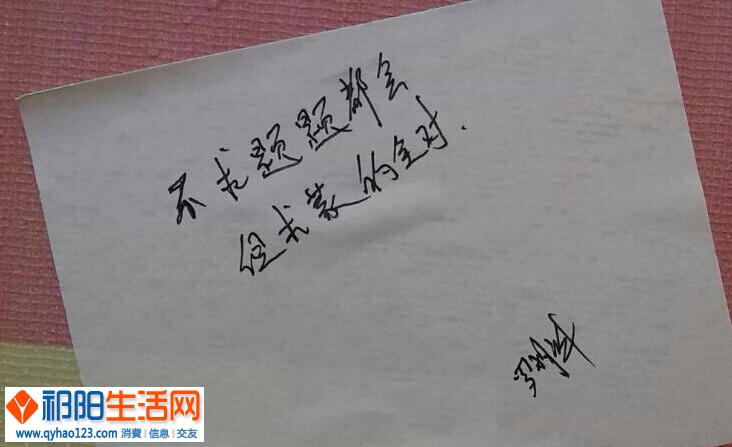 不求题题都会
但求蒙的全对.
祁阳生活网
www.qyhao123.com 消費 | 信息 | 交友